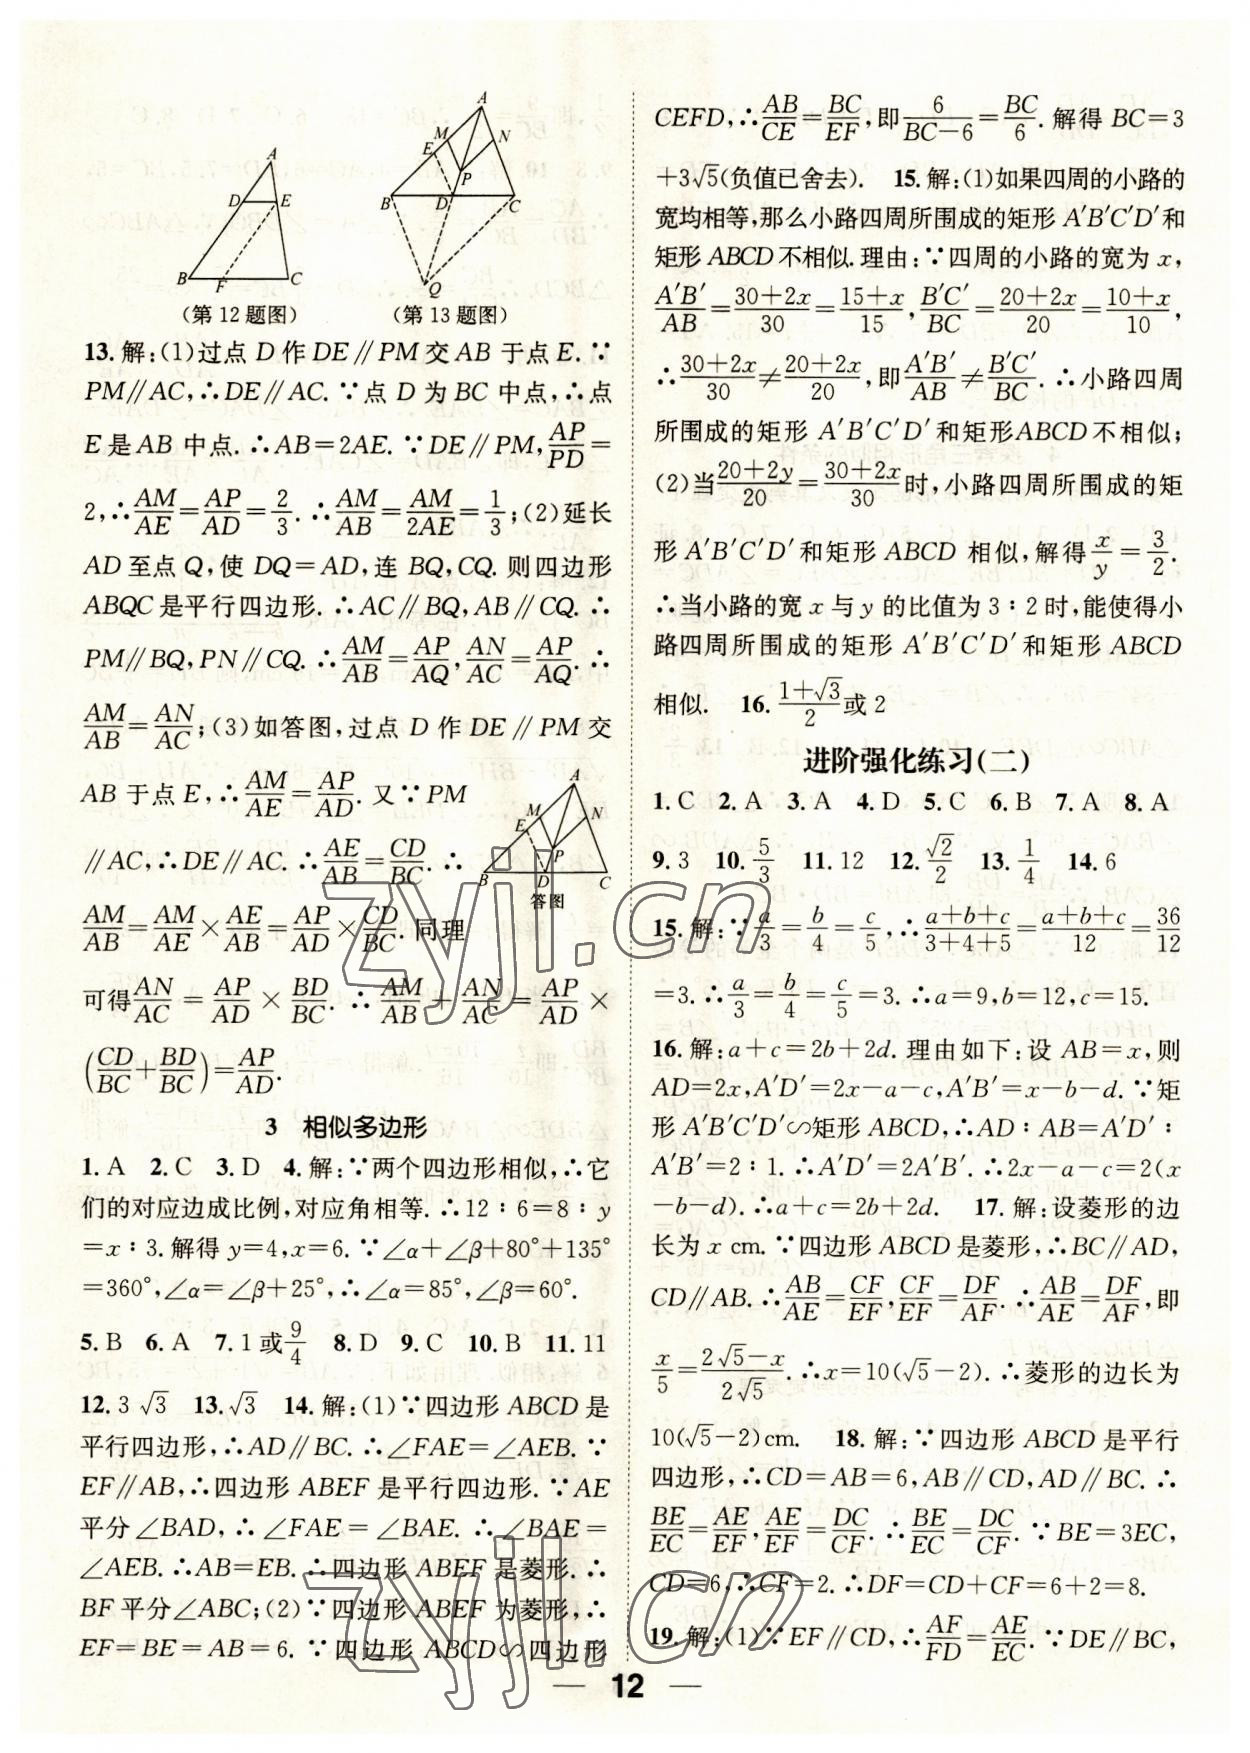 A
D E
B F C
(第12题图)
A
M N
E P
B D C
Q
(第13题图)
13.解:(1)过点 D 作 DE∥PM 交 AB 于点 E.∵
PM∥AC,∴DE∥AC.∵点 D 为 BC 中点,∴点
E 是 AB 中点.∴AB=2AE.∵DE∥PM,AP/PD=
2,∴AM/AE=AP/AD=2/3.∴AM/AB=AM/2AE=1/3;(2)延长
AD 至点 Q,使 DQ=AD,连 BQ,CQ.则四边形
ABQC 是平行四边形.∴AC∥BQ,AB∥CQ.∴
PM∥BQ,PN∥CQ.∴AM/AB=AP/AQ,AN/AC=AP/AQ.∴
AM/AB=AN/AC;(3)如答图,过点 D 作 DE∥PM 交
AB 于点 E,∴AM/AE=AP/AD.又∵PM
∥AC,∴DE∥AC.∴AE/AB=CD/BC.∴
AM/AB=AM/AE×AE/AB=AP/AD×CD/BC.同理
A
M N
E P
B D C
答图
可得AN/AC=AP/AD×BD/BC.∴AM/AB+AN/AC=AP/AD×
(CD/BC+BD/BC)=AP/AD.
3 相似多边形
1.A 2.C 3.D 4.解:∵两个四边形相似,∴它
们的对应边成比例,对应角相等.∴12∶6=8∶y
=x∶3.解得 y=4,x=6.∵∠α+∠β+80°+135°
=360°,∠α=∠β+25°,∴∠α=85°,∠β=60°.
5.B 6.A 7.1或9/4 8.D 9.C 10.B 11.11
12.3√3 13.√3 14.解:(1)∵四边形 ABCD 是
平行四边形,∴AD∥BC.∴∠FAE=∠AEB.∵
EF∥AB,∴四边形 ABEF 是平行四边形.∵AE
平分∠BAD,∴∠FAE=∠BAE.∴∠BAE=
∠AEB.∴AB=EB.∴四边形 ABEF 是菱形.∴
BF 平分∠ABC;(2)∵四边形 ABEF 为菱形,∴
EF=BE=AB=6.∵四边形 ABCD∽四边形
CEFD,∴AB/CE=BC/EF,即6/BC-6=BC/6.解得 BC=3
+3√5(负值已舍去). 15.解:(1)如果四周的小路的
宽均相等,那么小路四周所围成的矩形 A′B′C′D′和
矩形 ABCD 不相似.理由:∵四周的小路的宽为 x,
A′B′/AB=30+2x/30=15+x/15,B′C′/BC=20+2x/20=10+x/10,
∴30+2x/30≠20+2x/20,即A′B′/AB≠B′C′/BC.∴小路四周
所围成的矩形 A′B′C′D′和矩形ABCD不相似;
(2)当20+2y/20=30+2x/30时,小路四周所围成的矩
形 A′B′C′D′和矩形 ABCD 相似,解得x/y=3/2.
∴当小路的宽 x 与 y 的比值为 3∶2时,能使得小
路四周所围成的矩形 A′B′C′D′和矩形 ABCD
相似. 16.1+√3/2或2
进阶强化练习(二)
1.C 2.A 3.A 4.D 5.C 6.B 7.A 8.A
9.3 10.5/3 11.12 12.√2/2 13.1/4 14.6
15.解:∵a/3=b/4=c/5,∴a+b+c/3+4+5=a+b+c/12=36/12
=3.∴a/3=b/4=c/5=3.∴a=9,b=12,c=15.
16.解:a+c=2b+2d.理由如下:设 AB=x,则
AD=2x,A′D′=2x-a-c,A′B′=x-b-d.∵矩
形 A′B′C′D′∽矩形 ABCD,∴AD∶AB=A′D′∶
A′B′=2∶1.∴A′D′=2A′B′.∴2x-a-c=2(x
-b-d).∴a+c=2b+2d. 17.解:设菱形的边
长为 x cm.∵四边形 ABCD 是菱形,∴BC∥AD,
CD∥AB.∴AB/AE=CF/EF,CF/EF=DF/AF.∴AB/AE=DF/AF,即
x/5=2√5-x/2√5.∴x=10(√5-2).∴菱形的边长为
10(√5-2)cm. 18.解:∵四边形 ABCD 是平行
四边形,∴CD=AB=6,AB∥CD,AD∥BC.∴
BE/EC=AE/EF,AE/EF=DC/CF.∴BE/EC=DC/CF.∵BE=3EC,
CD=6,∴CF=2.∴DF=CD+CF=6+2=8.
19.解:(1)∵EF∥CD,∴AF/FD=AE/EC.∵DE∥BC,
— 12 —
zyjl.cn
zyjl.cn